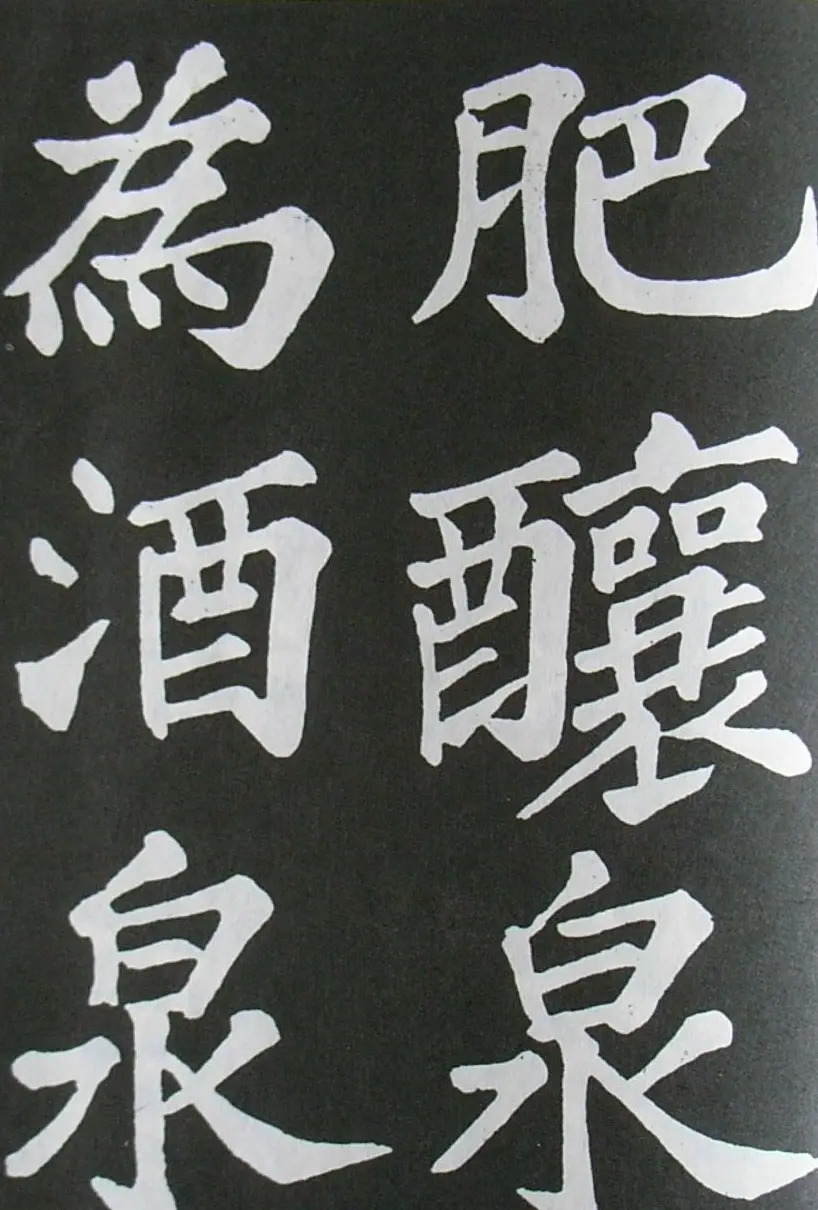 肥釀泉
為酒泉